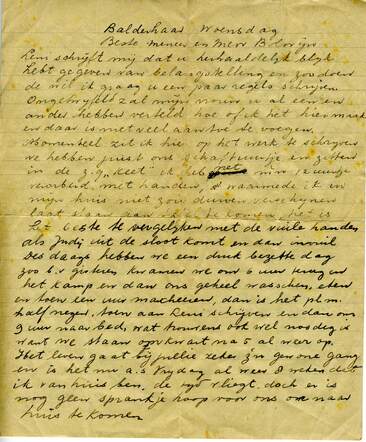 Balderhaar Woensdag
Beste meneer en Mevr Bolwijn
Leni schrijft mij dat u herhaaldelijk blijk
hebt gegeven van belangstelling en zoodoen
de wil ik graag u een paar regels schrijven
Ongetwijfeld zal mijn vrouw u al een en
ander hebben verteld hoe of ik het hier maak
en daar is niet veel aan toe te voegen.
Momenteel zit ik hier op het werk te schrijven
we hebben juist ons schaftuurtje en zitten
in de z.g. "Keet" ik heb net mijn
met handen, waarmede ik in
mijn huis niet zou durven verschijnen
laat staan aan te komen, het is
het beste te vergelijken met de vuile handen
als Judij uit de sloot komt en dan
Des daags hebben we een druk bezette dag
zoo b.v. gisteren kwamen we om 6 uur terug in
het kamp en dan ons geheel wasschen, eten
en toen een uur marcheeren, dan is het pl.m.
half negen, toen aan Leni schrijven en dan om
9 uur naar bed, wat trouwens ook wel noodig is
want we staan op kwart na 5 al weer op.
Het leven gaat bij jullie zeker z'n gewone gang
en is het nu a.s. Vrijdag al weer 8 weken dat
ik van huis ben, de tijd vliegt, doch er is
nog geen sprankje hoop voor ons om naar
huis te komen